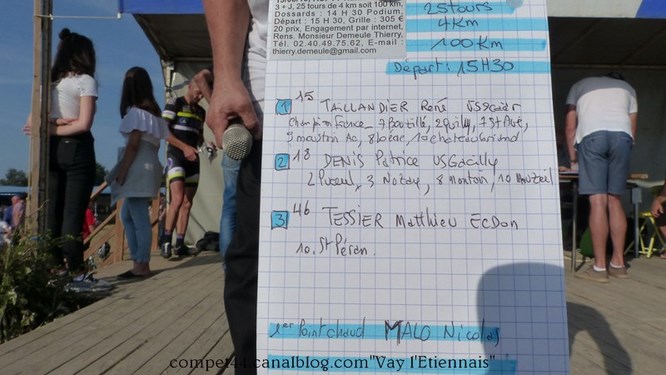 3 + J, 25 tours de 4 km soit 100 km,
Dossards : 14 H 30 Podium,
Départ : 15 H 30, Grille : 305 €
20 prix, Engagement par internet,
Rens. Monsieur Demeule Thierry,
Tél. 02.40.49.75.62, E-mail
thierry.demeule@gmail.com
25 tours
4Km
100 Km
Départ: 15H30
1 15 TAILLANDIER René
Champion France, 7 Bouvillé, 2 Quilly, 7 St
8 10 chateaubriand
2 13 DENIS Patrice USGacilly
2 3 Nozay, 8 10 Mouzeil
3 46 TESSIER Matthieu
10. St Péran.
1er Pointchaud MALO Nicolas
compet44.canalblog.com"Vay l'Etiennais"